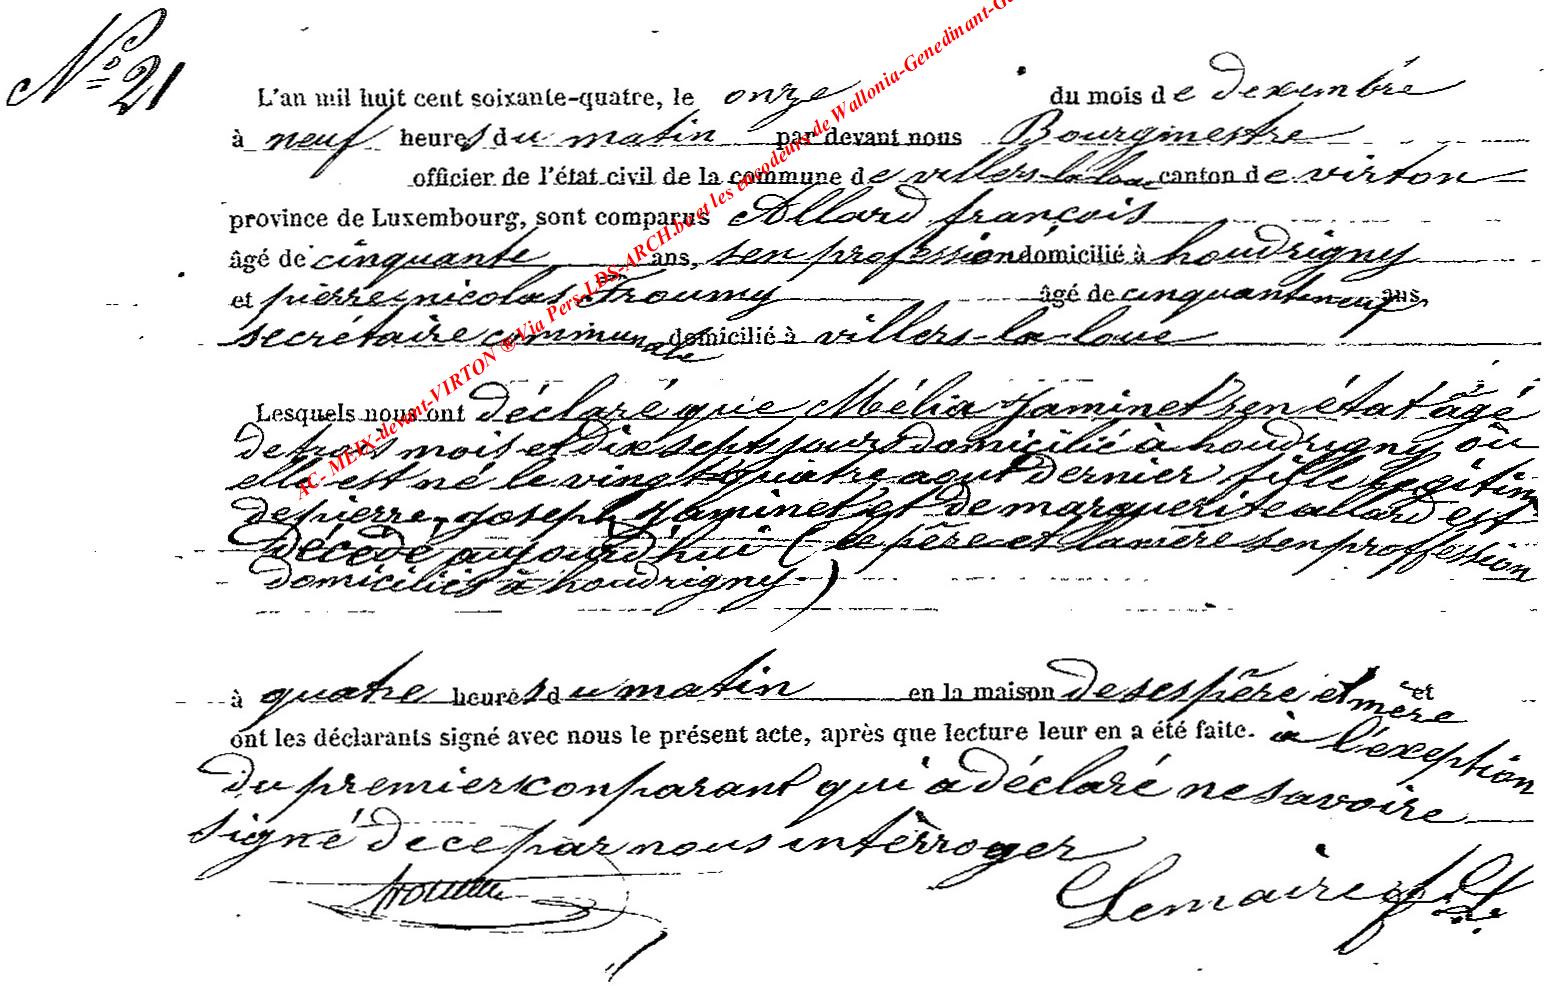 N° 21
L'an mil huit cent soixante-quatre, le onze du mois de dexembre
à neuf heures du matin par devant nous Bourgmestre
officier de l'état civil de la commune de villers-la-loue canton de virton
province de Luxembourg, sont comparus Allard françois
âgé de cinquante ans, sen profession domicilié à houdrigny
et pierre nicolas Froumy âgé de cinquante neuf ans,
secrétaire communale domicilié à villers-la-loue
Lesquels nous ont déclaré que Mélia Jaminet sen état âgé
de trois mois et dix sept jours domicilié à houdrigny où
elle est né le vingt quatre aout dernier fille légitime
de pierre joseph Jaminet et de marguerite allard est
décédé aujourd'hui (le père et la mère sen proffession
domiciliés à houdrigny)
à quatre heures du matin en la maison de ses père et mère et
ont les déclarants signé avec nous le présent acte, après que lecture leur en a été faite. à l'exeption
du premier conparant qui a déclaré ne savoire
signé de ce par nous intérroger
Lemaire
AC- MEIX-devant-VIRTON ® Via Pers-LDS-ARCH.be et les encodeurs de Wallonia-Genedinant-G